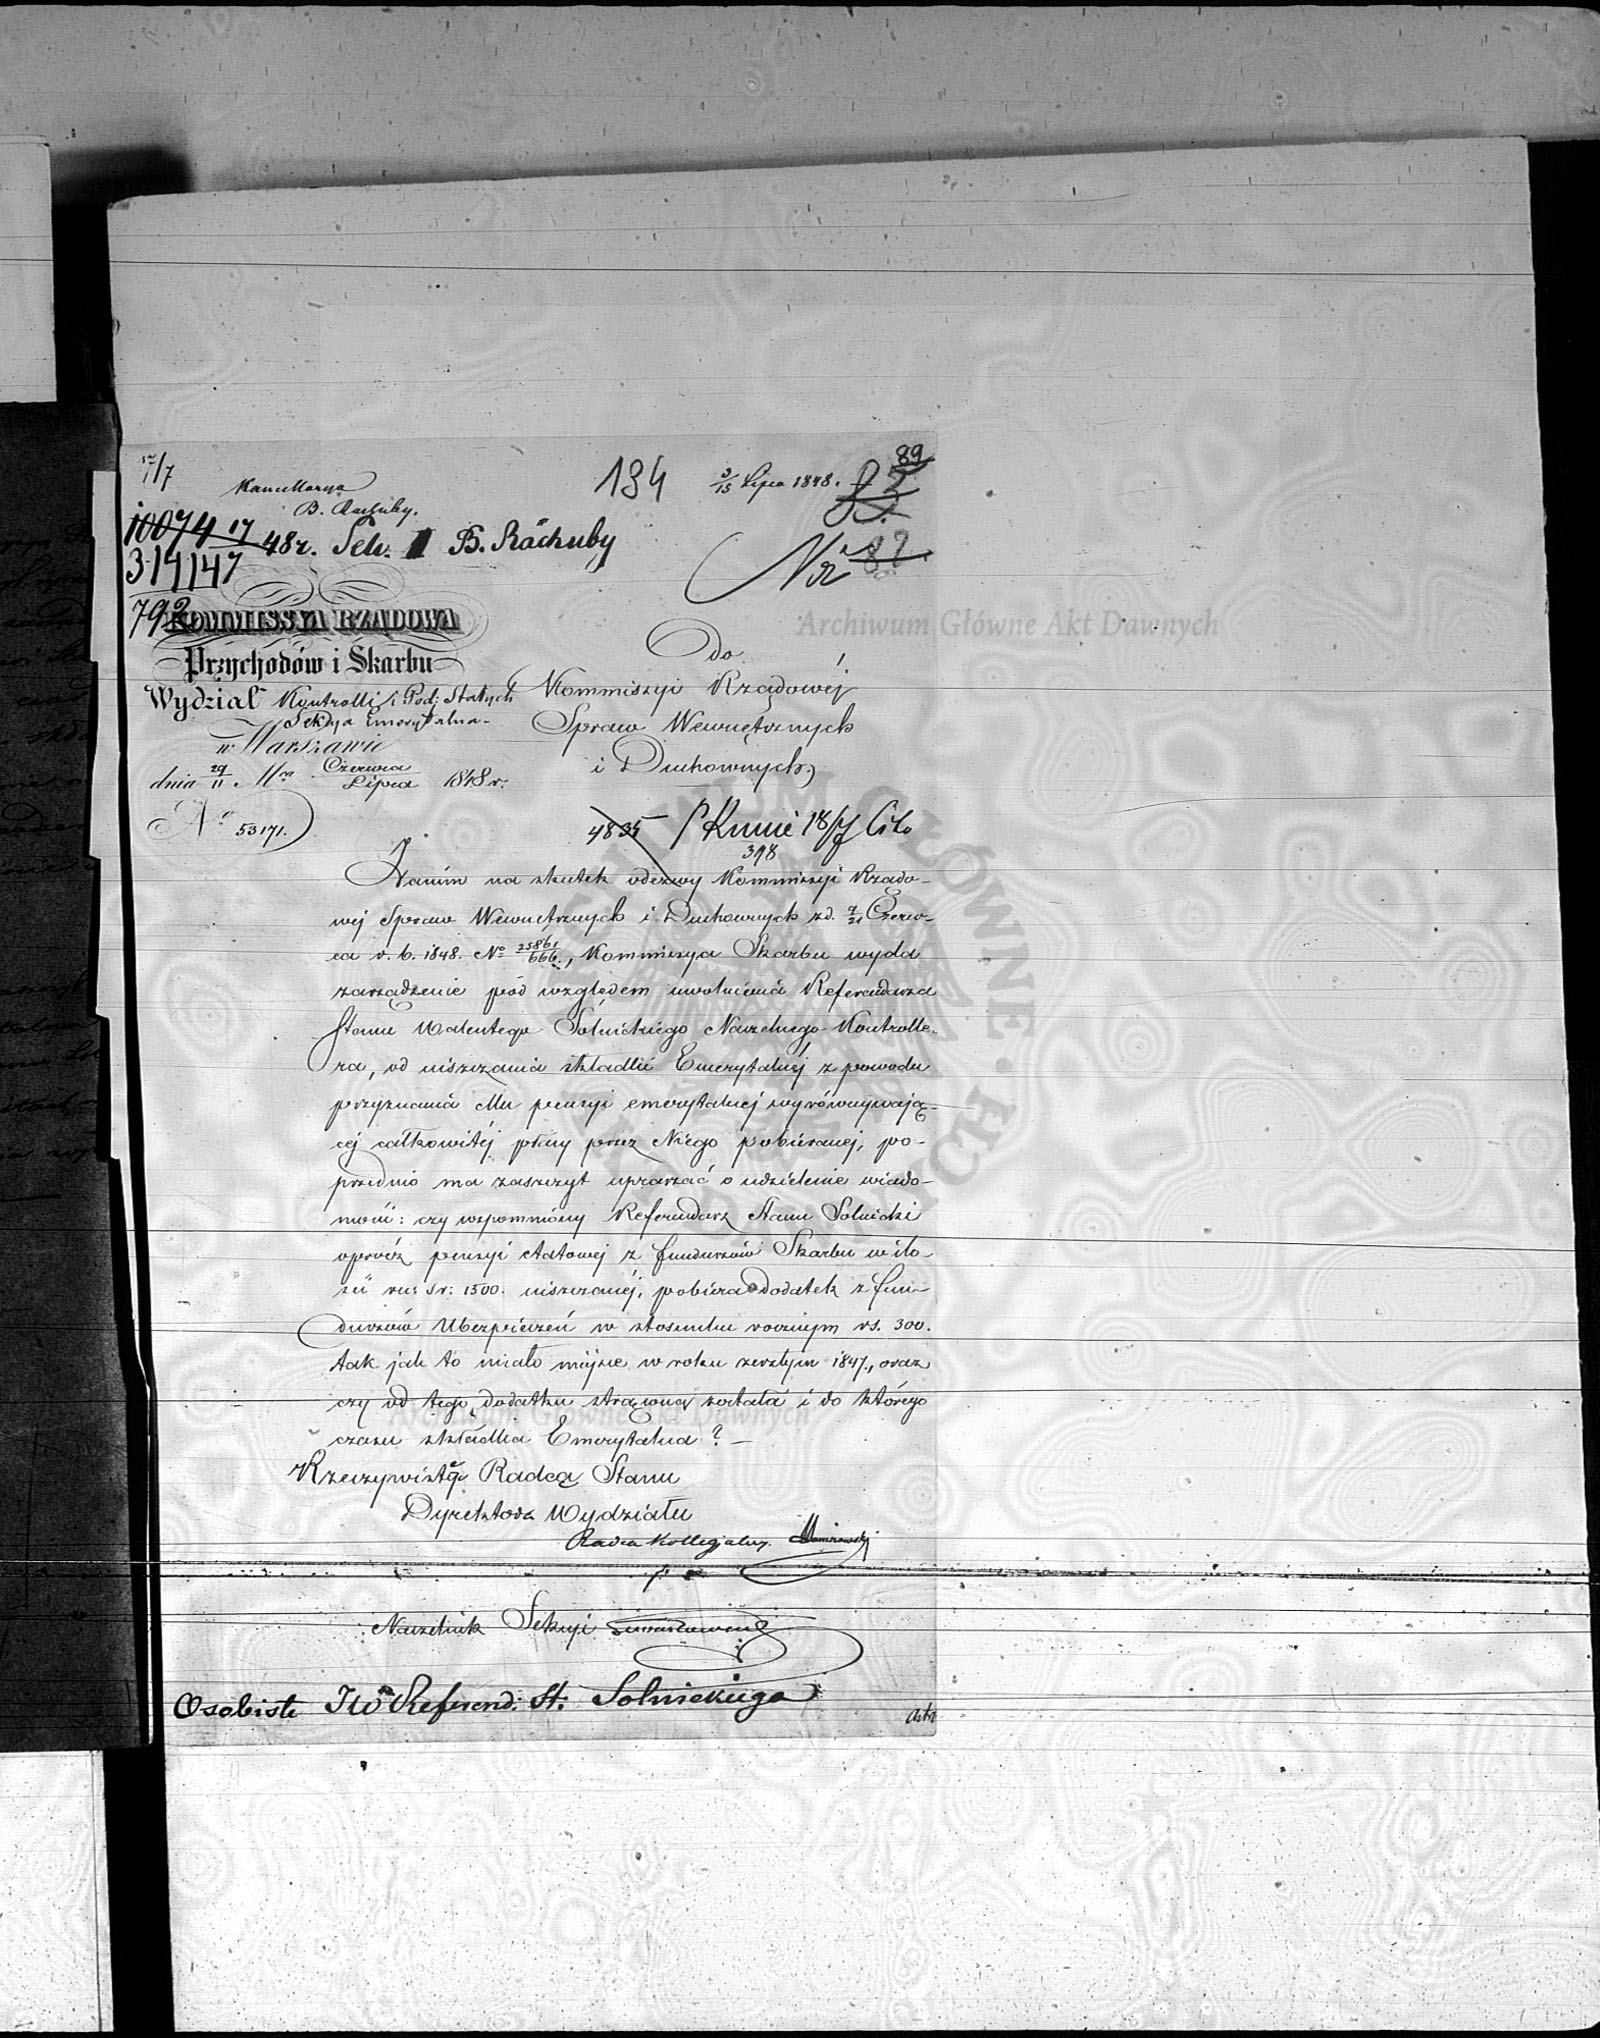 17/7
Kancellarya
B. Rachuby.
134
3/15 Lipca 1848.
89
83
10074 17 48r. Sek. I B. Rachuby
314147
792
Nr 82
KOMMISSYA RZĄDOWA
Przychodów i Skarbu
Wydział Kontrolli i Pod: Stałych
Sekcya Emerytalna
w Warszawie
dnia 29/11 Mca Czerwca/Lipca 1848 r.
No 53171.
Do
Kommissyi Rządowéj
Spraw Wewnętrznych
i Duchownych
4835
18/7 Cito
398
Zanim na skutek odezwy Kommissyi Rządo-
wej Spraw Wewnętrznych i Duchownych z d. 9/21 Czerw-
ca r. b. 1848. No 25861/666., Kommissya Skarbu wyda
zarządzenie pod względem uwolnienia Referendarza
Stanu Walentego Solnickiego Naczelnego Kontrolle-
ra, od uiszczania składki Emerytalnéj z powodu
przyznania Mu pensyi emerytalnej wyrównywają-
cej całkowitéj płacy przez Niego pobieranej, po-
przednio ma zaszczyt upraszać o udzielenie wiado-
mości: czy wspomniony Referendarz Stanu Solnicki
oprócz pensyi etatowej z funduszów Skarbu w ilo-
ści rs. sr: 1500. uiszczanéj, pobiera dodatek z fun-
duszów Ubezpieczeń w stosunku rocznym rs. 300.
tak jak to miało miejsce w roku zeszłym 1847., oraz
czy od tego dodatku strącaną została i do którego
czasu składka Emerytalna? –
Rzeczywisty Radca Stanu
Dyrektor Wydziału
Radca Kollegjalny.
Naczelnik Sekcyi
Osobiste JWo Referend. St: Solnickiego
Archiwum Główne Akt Dawnych
Archiwum Główne Akt Dawnych